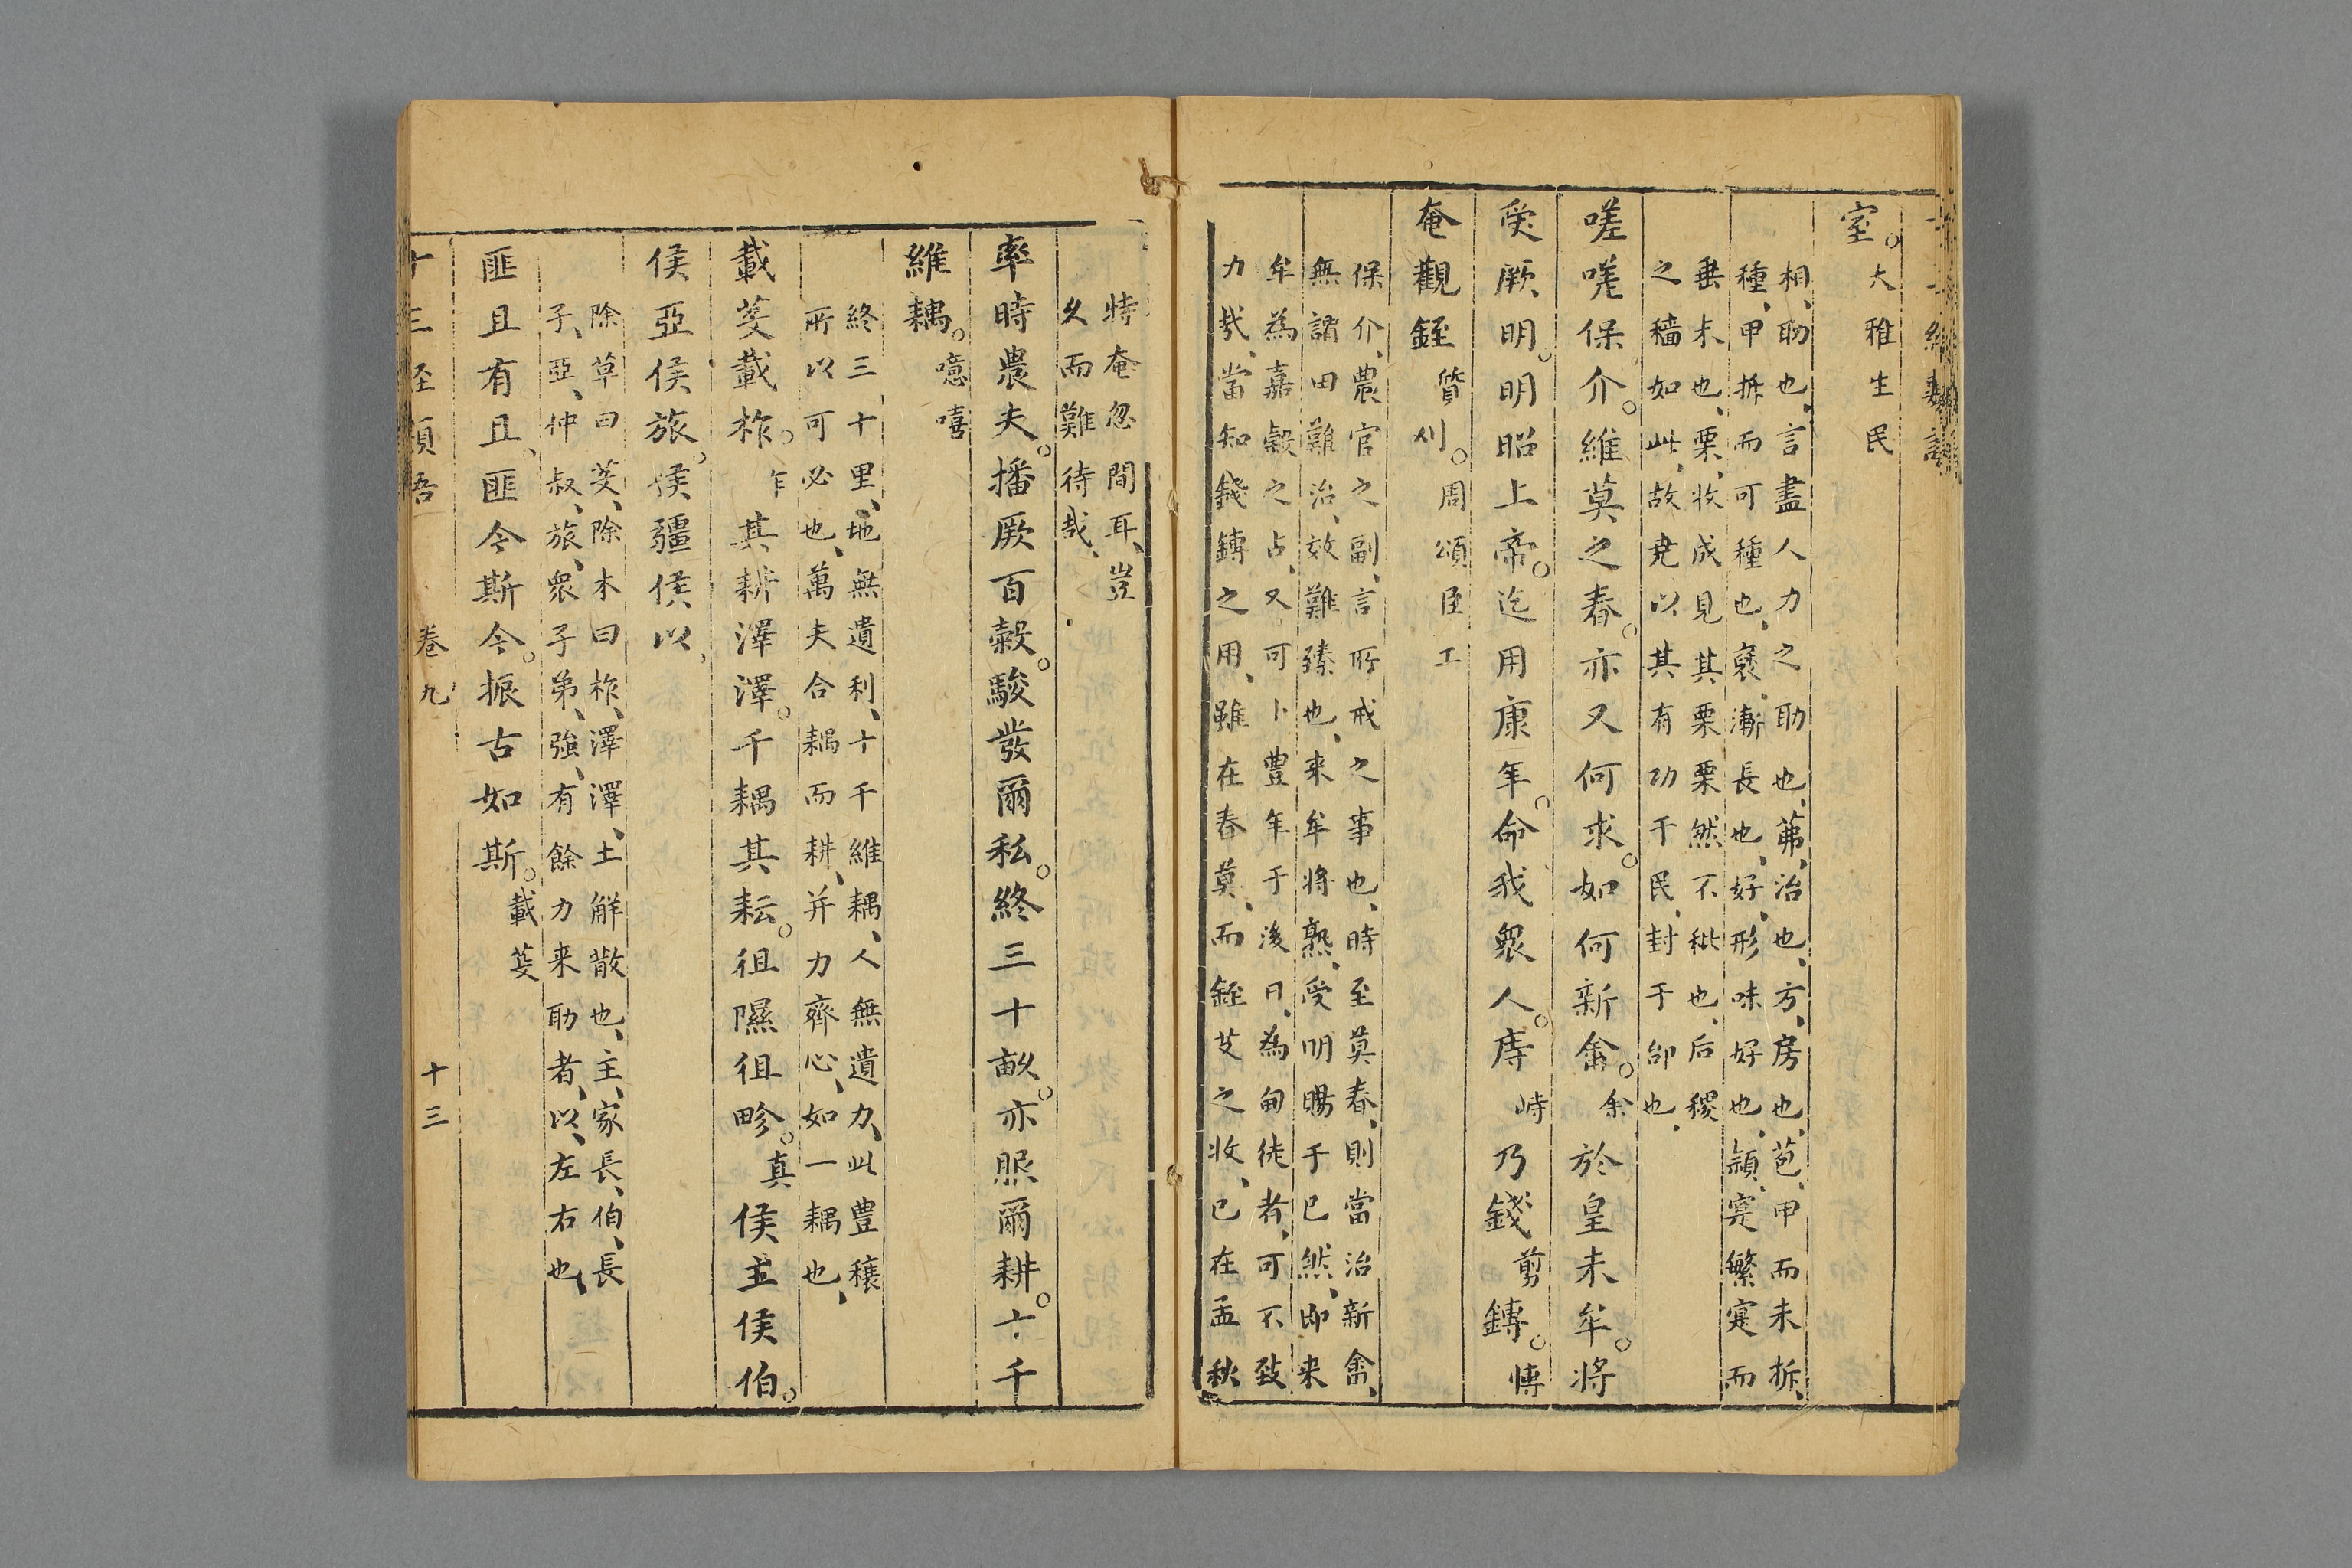 室。大雅生民
相、助也、言盡人力之助也、茀、治也、方、房也、苞、甲而未拆、
種、甲拆而可種也、褎、漸長也、好、形味好也、頴、寔繁寔而
垂末也、栗、收成見其栗栗然不秕也、后稷
之穡如此、故尭以其有功于民、封于邰也、
嗟嗟保介。維莫之春。亦又何求。如何新畬。余於皇未牟。將
受厥明。明昭上帝。迄用康年。命我衆人。庤峙乃錢剪鎛。愽
奄觀銍質刈。周頌臣工
保介、農官之副、言所戒之事也、時至莫春、則當治新畬、
無諸田難治、效難臻也、来牟将熟、受明賜于已然、即来
牟為嘉穀之占、又可卜豊年于後日、為甸徒者、可不致
力哉、當知錢鎛之用、雖在春莫、而銍艾之收、已在孟秋
特奄忽間耳、豈
久而難待哉、
率時農夫。播厥百穀。駿發爾私。終三十畝。亦服爾耕。十千
維耦。噫嘻
終三十里、地無遺利、十千維耦、人無遺力、此豊穰
所以可必也、萬夫合耦而耕、并力齊心、如一耦也、
載芟載柞。乍其耕澤澤。千耦其耘。徂隰徂畛。真侯主侯伯。
侯亞侯旅。侯彊侯以、
除草曰芟、除木曰柞、澤澤、土解散也、主、家長、伯、長
子、亞、仲叔、旅、衆子弟、強、有餘力来助者、以、左右也、
匪且有且、匪今斯今。振古如斯。載芟
十三經頂吾 卷九 十三